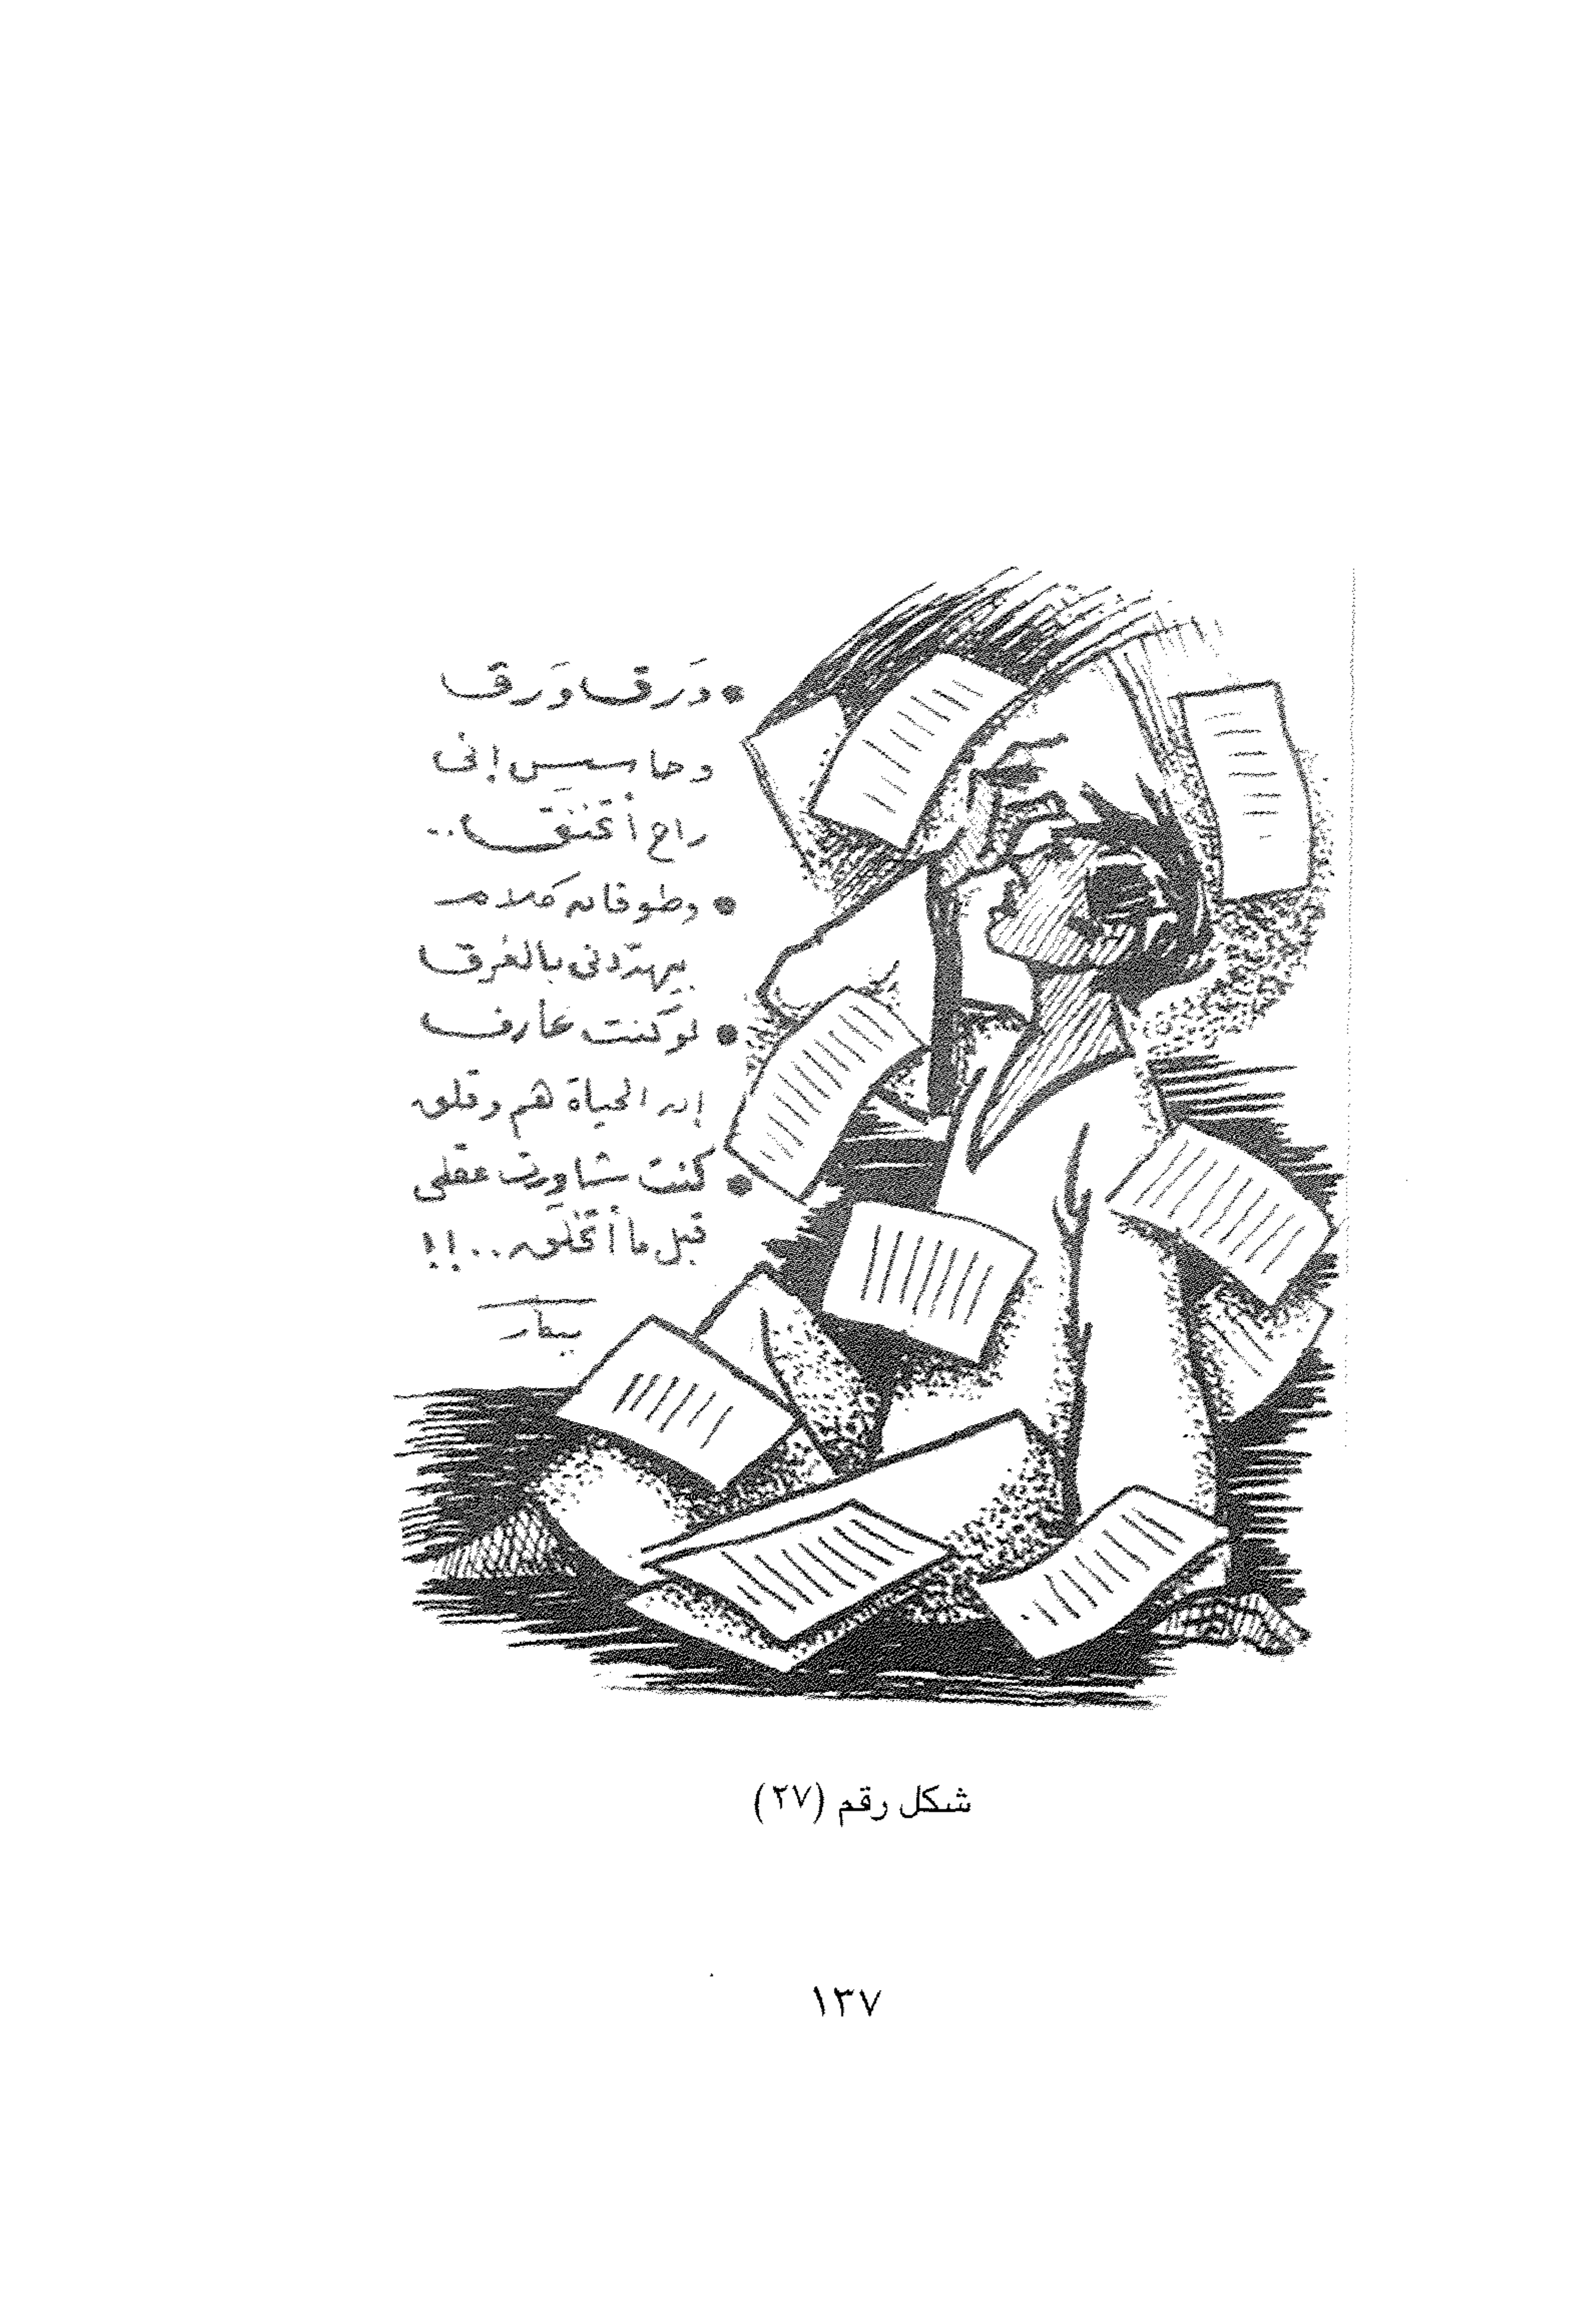 • وَرق وَرق
وحاسس إنى
راح أتخنق..
• وطوفان كلام
بيهدّدنى بالغرق
• لو كنت عارف
إن الحياة هم وقلق
• كنت شاورت عقلى
قبل ما أتخلق..!!
بيكار
شكل رقم (٢٧)
١٣٧